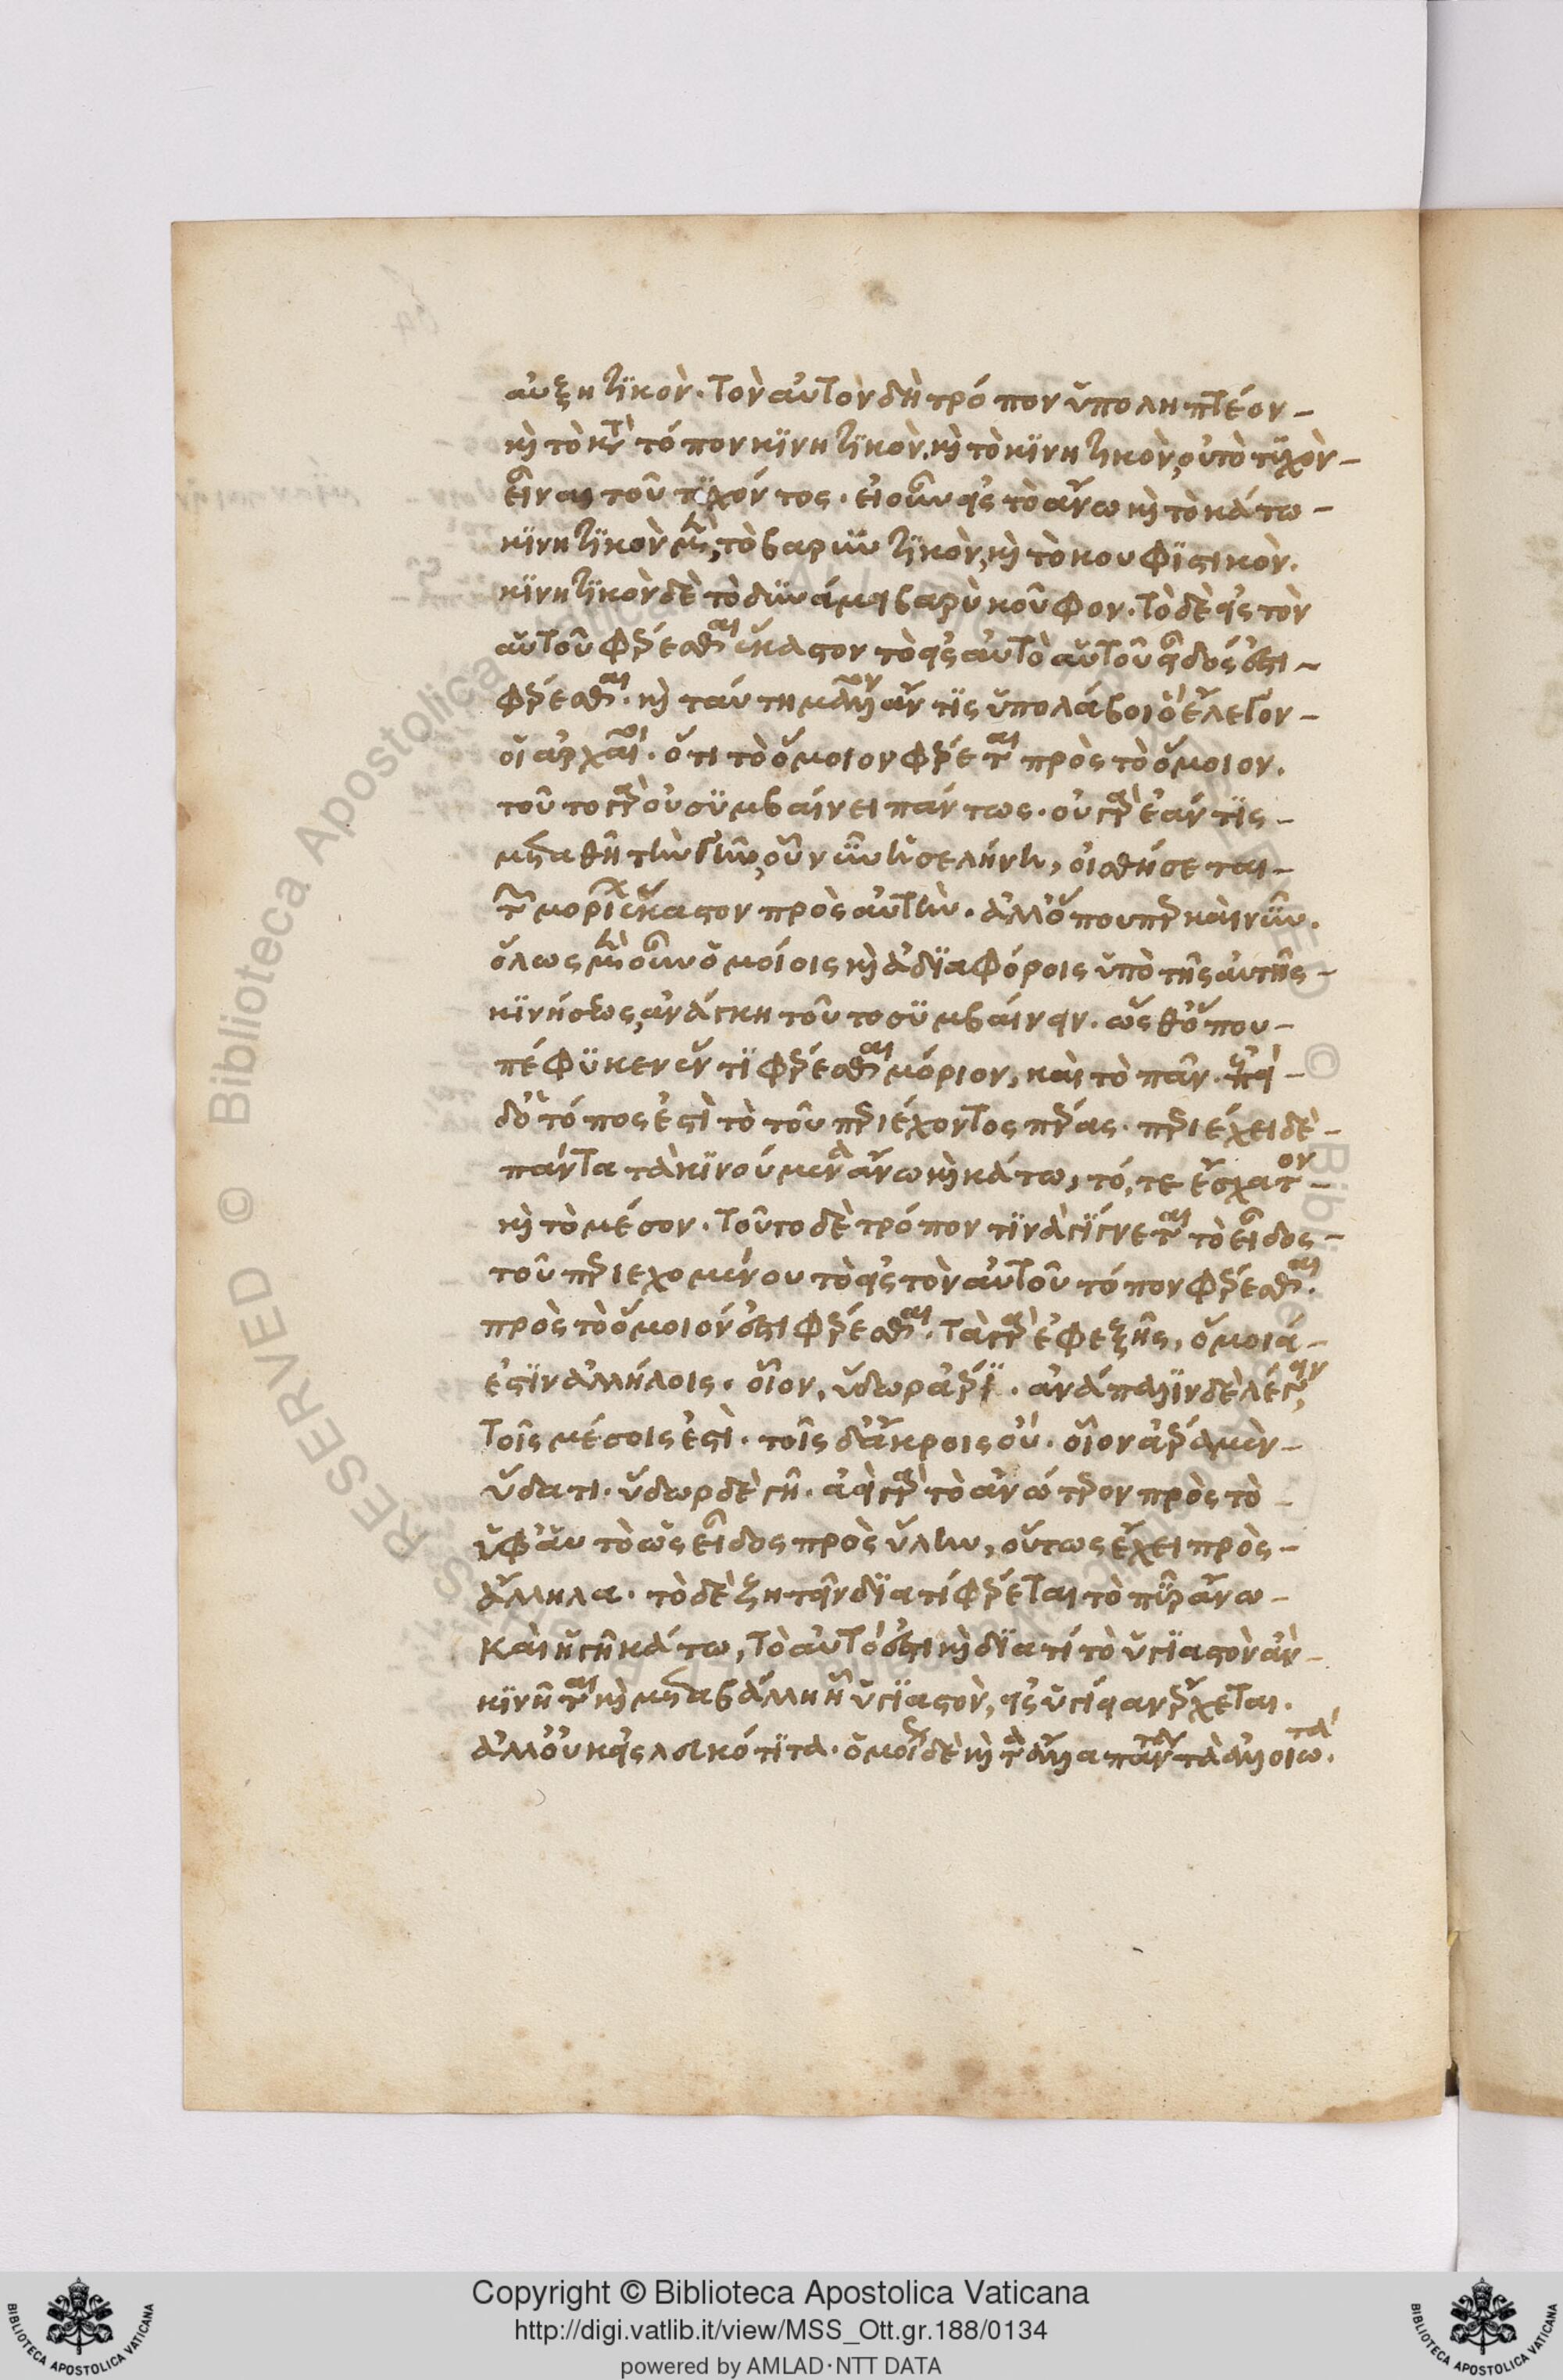 αὐξητικὸν. τὸν αὐτὸν δὴ τρόπον ὑποληπτέον
καὶ τὸ κατὰ τόπον κινητικὸν. καὶ τὸ κινητικὸν, οὐ τὸ τυχὸν
εἶναι τοῦ τυχόντος. εἰ οὖν εἰς τὸ ἄνω καὶ τὸ κάτω
κινητικὸν μὲν, τὸ βαρυντικὸν, καὶ τὸ κουφιστικὸν.
κινητικὸν δὲ τὸ δυνάμει βαρὺ κοῦφον. τὸ δὲ εἰς τὸν
αὑτοῦ φέρεσθαι ἕκαστον τὸ εἰς αὐτὸ αὑτοῦ εἶδός ἐστι
φέρεσθαι. καὶ ταύτῃ μᾶλλον ἄν τις ὑπολάβοι ὃ ἔλεγον
οἱ ἀρχαῖοι. ὅτι τὸ ὅμοιον φέρεται πρὸς τὸ ὅμοιον.
τοῦτο γὰρ οὐ συμβαίνει πάντως. οὐ γὰρ ἐάν τις
μεταθῇ τὴν γῆν, οὗ νῦν ἡ σελήνη, οἰσθήσεται
τῶν μορίων ἕκαστον πρὸς αὐτὴν. ἀλλ' ὅπου περ καὶ νῦν.
ὅλως μὲν οὖν ὁμοίοις καὶ ἀδιαφόροις ὑπὸ τῆς αὐτῆς
κινήσεως, ἀνάγκη τοῦτο συμβαίνειν. ὥσθ' ὅπου
πέφυκεν ἕν τι φέρεσθαι μόριον, καὶ τὸ πᾶν. ἐπεὶ
δ' ὁ τόπος ἐστὶ τὸ τοῦ περιέχοντος πέρας. περιέχει δὲ
πάντα τὰ κινούμενα ἄνω καὶ κάτω, τό, τε ἔσχατον
καὶ τὸ μέσον. τοῦτο δὲ τρόπον τινὰ γίγνεται τὸ εἶδος
τοῦ περιεχομένου τὸ εἰς τὸν αὑτοῦ τόπον φέρεσθαι.
πρὸς τὸ ὅμοιόν ἐστι φέρεσθαι. τὰ γὰρ ἐφεξῆς, ὅμοιά
ἐστιν ἀλλήλοις. οἷον, ὕδωρ ἀέρι. ἀνάπαλιν δὲ λέγειν,
τοῖς μέσοις ἐστὶ. τοῖς δ' ἄκροις οὔ. οἷον ἀέρα μὲν
ὕδατι. ὕδωρ δὲ γῇ. ἀεὶ γὰρ τὸ ἀνώτερον πρὸς τὸ
ὑφ' αὑτὸ ὡς εἶδος πρὸς ὕλην, οὕτως ἔχει πρὸς
ἄλληλα. τὸ δὲ ζητεῖν διατί φέρεται τὸ πῦρ ἄνω
καὶ ἡ γῆ κάτω, τὸ αὐτό ἐστι καὶ διατί τὸ ὑγιαστὸν ἂν
κινῆται καὶ μεταβάλλη ἧ ὑγιαστὸν, εἰς ὑγίειαν ἔρχεται.
ἀλλ' οὐκ εἰς λευκότητα. ὁμοίως δὲ καὶ τἄλλα πάντα τὰ ἀλλοιωτά.
Copyright © Biblioteca Apostolica Vaticana
http://digi.vatlib.it/view/MSS_Ott.gr.188/0134
powered by AMLAD·NTT DATA